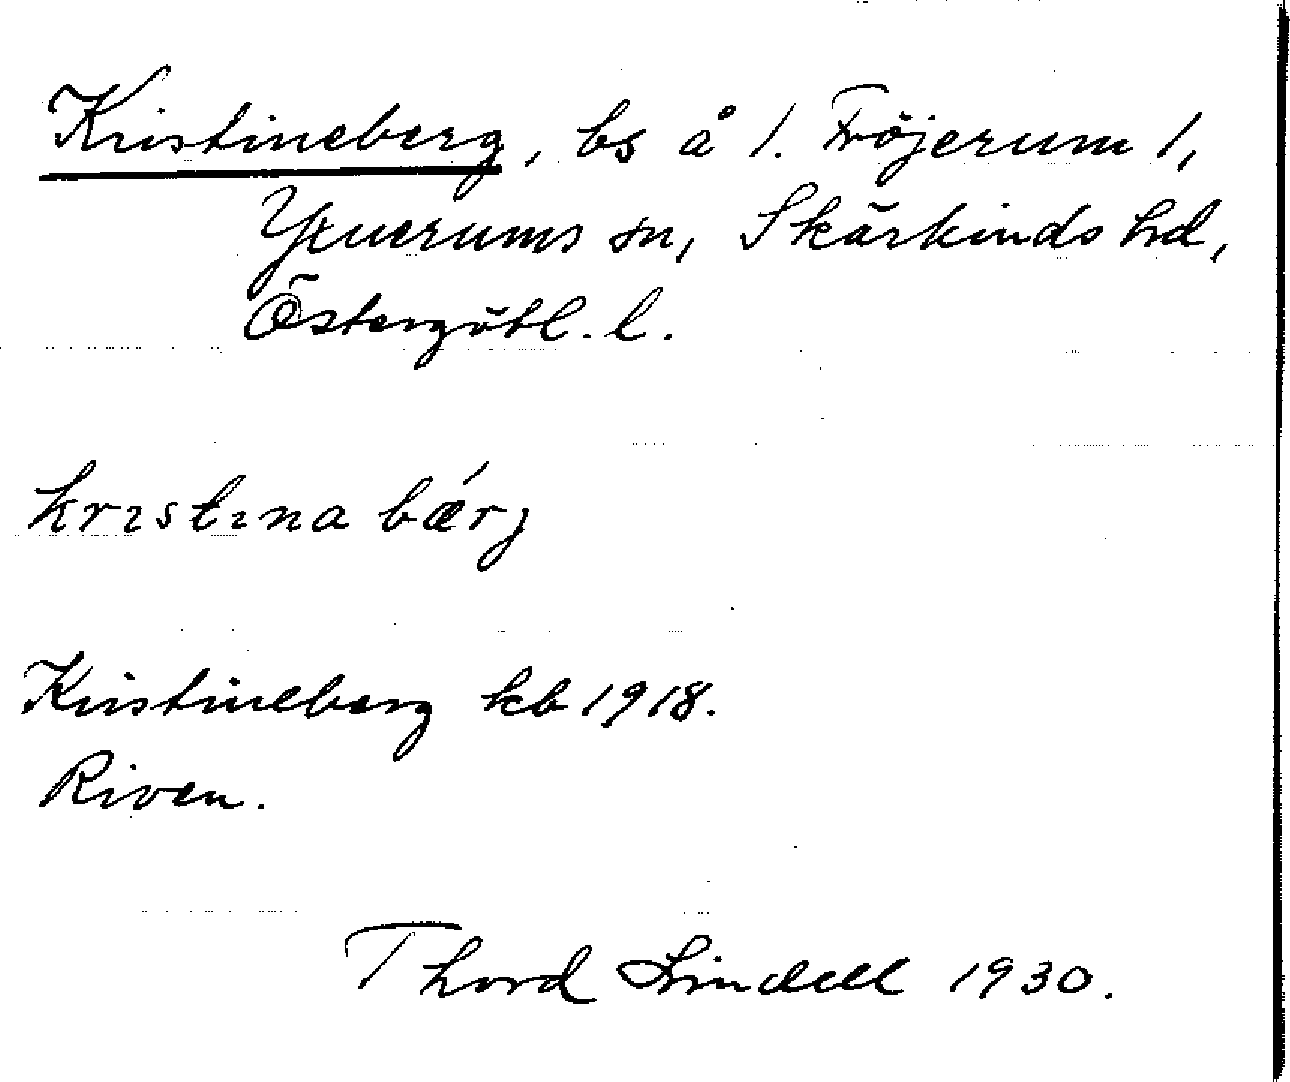 Kristineberg, bs å 1. Fröjerum 1,
Yxnerums sn, Skärkinds hd,
Östergötl. l.
kristina bǽrj
Kristineberg kb 1918.
Riven.
Thord Lindell 1930.